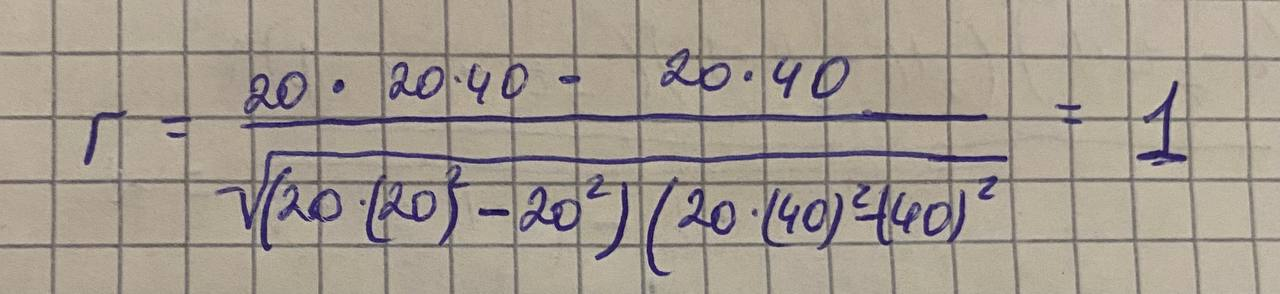 r = (20 · 20·40 - 20·40) / √(20·(20)² - 20²)(20·(40)² - (40)² = 1